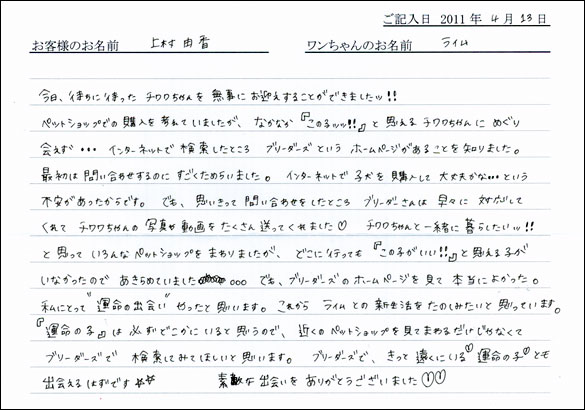 ご記入日 2011 年 4 月 13 日
お客様のお名前 上村 由香 ワンちゃんのお名前 ライム
今日、待ちに待った チワワちゃんを 無事に お迎えすることができましたッ!!
ペットショップでの購入を考えていましたが、なかなか『この子ッッ!!』と 思える チワワちゃんに めぐり
会えず・・・ インターネットで 検索したところ ブリーダーズという ホームページがあることを 知りました。
最初は 問い合わせするのに すごくためらいました。 インターネットで 子犬を購入して 大丈夫かな…という
不安があったからです。 でも、思いきって 問い合わせをしたところ ブリーダーさんは 早々に 対応して
くれて チワワちゃんの 写真や動画を たくさん 送ってくれました♡ チワワちゃんと 一緒に 暮らしたいッ!!
と 思って いろんなペットショップを まわりましたが、 どこに行っても 『この子がいい!!』と 思える 子が
いなかったので あきらめていました 。。。 でも、ブリーダーズのホームページを見て 本当によかった。
私にとって "運命の出会い" やったと 思います。 これから ライムとの 新生活を たのしみたいと 思っています。
『運命の子』は 必ず どこかにいると 思うので、 近くのペットショップを 見てまわるだけじゃなくて
ブリーダーズで 検索してみてほしいと 思います。 ブリーダーズで、 きっと 遠くにいる "運命の子" とも
出会えるはずです☆☆ 素敵な出会いを ありがとうございました♡♡